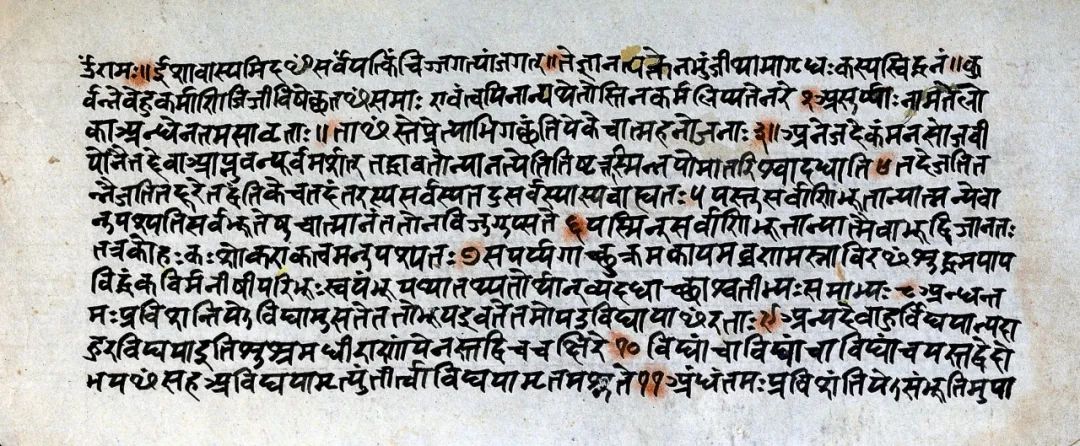 ॐरामः॥ईशावास्यमिदꣳसर्वंयत्किंचिज्जगत्यांजगत्॥तेनत्यक्तेनभुंजीथामागृधःकस्यस्विद्धनं॥कु
र्वन्नेवेहकर्माणिजिजीविषेच्छतꣳसमाः एवंत्वयिनान्यथेतोस्तिनकर्मलिप्यतेनरे २असुर्य्याःनामतेलो
काअन्धेनतमसावृताः॥ताꣳस्तेप्रेत्याभिगच्छंतियेकेचात्महनोजनाः३॥अनेजदेकंमनसोजवी
योनैतदेवाआप्नुवन्पूर्वमर्शत् तद्धावतोन्यानत्येतितिष्टत्तस्मिन्नपोमातरिश्वादधाति४तदेजतित
न्नैजतितद्दूरेतदंतिकेचतदंतरस्यसर्वस्यतदुसर्वस्यास्यवाह्यतः५यस्तुसर्वाणिभूतान्यात्मन्येवा
नुपश्यतिसर्वभूतेषुचात्मानंततोनविजुगुप्सते६यस्मिन्सर्वाणिभूतान्यात्मैवाभूद्विजानतः
तत्रकोहःकःशोकएकत्वमनुपश्यतः७सपर्य्यगाच्छुक्रमकायमव्रणमस्नाविरꣳशुद्धमपाप
विद्धंकविर्मनीषीपरिभूःस्वयंभूयथातथ्यतोर्थान्व्यदधाच्छाश्वतीभ्यःसमाभ्यः८अन्धन्त
मःप्रविशन्तियेऽविद्यामुपासतेततोभूयइवतेतमोयउविद्यायाꣳरताः९अन्यदेवाहुर्विद्ययान्यदा
हुरविद्ययाइतिशुश्रुमधीराणांयेनस्तद्विचचक्षिरे१०विद्यांचाविद्यांचाविद्यांचयस्तद्वेदो
भयꣳसहअविद्ययामृत्युंतीर्त्वाविद्ययामृतमश्नुते११अंधंतमःप्रविशंतियेऽसंभूतिमुपा